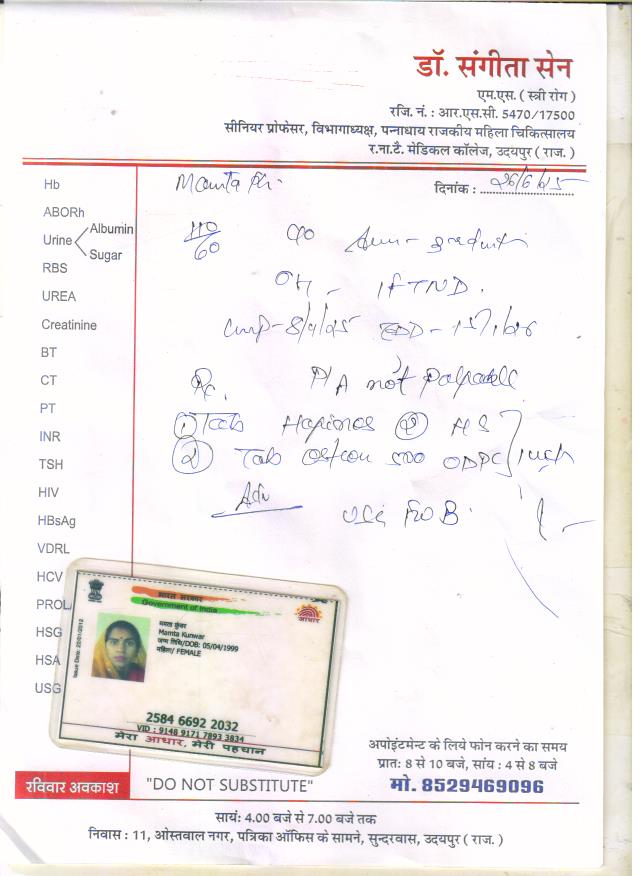 डॉ. संगीता सेन
एम.एस. ( स्त्री रोग )
रजि. नं. : आर.एस.सी. 5470/17500
सीनियर प्रोफेसर, विभागाध्यक्ष, पन्नाधाय राजकीय महिला चिकित्सालय
र.ना.टै. मेडिकल कॉलेज, उदयपुर ( राज. )
Mamta
दिनांक : 26/6/25
Hb
ABORh
Urine Albumin
Sugar
RBS
UREA
Creatinine
BT
CT
PT
INR
TSH
HIV
HBsAg
VDRL
HCV
PROL
HSG
HSA
USG
110/60
LMP- 8/4/25 EDD- 15/1/26
P/A not
① Tab HS
② Tab 500
Adv
भारत सरकार
Government of India
आधार
Issue Date: 22/01/2012
ममता कुंवर
Mamta Kunwar
जन्म तिथि/DOB: 05/04/1999
महिला/ FEMALE
2584 6692 2032
VID : 9148 9171 7893 3834
मेरा आधार, मेरी पहचान
अपोइंटमेन्ट के लिये फोन करने का समय
प्रात: 8 से 10 बजे, सांय : 4 से 8 बजे
मो. 8529469096
रविवार अवकाश
"DO NOT SUBSTITUTE"
सायं: 4.00 बजे से 7.00 बजे तक
निवास : 11, ओस्तवाल नगर, पत्रिका ऑफिस के सामने, सुन्दरवास, उदयपुर ( राज. )